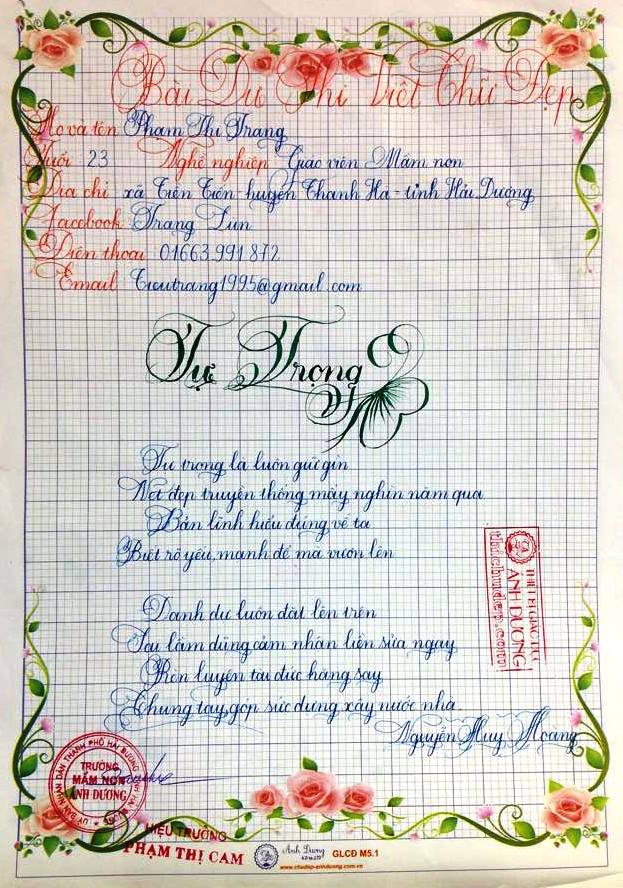 Bài Dự Thi Viết Chữ Đẹp
Họ và tên Phạm Thị Trang
Tuổi 23 Nghề nghiệp Giáo viên Mầm non
Địa chỉ xã Tiền Tiến huyện Thanh Hà - tỉnh Hải Dương
Facebook Trang Tun
Điện thoại 01663.991.872
Email Tieutrang1995@gmail.com
Tự Trọng
Tự trọng là luôn giữ gìn
Nét đẹp truyền thống mấy nghìn năm qua
Bản lĩnh hiểu đúng về ta
Biết rõ yếu, mạnh để mà vươn lên
Danh dự luôn đặt lên trên
Sai lầm dũng cảm nhận liền sửa ngay
Rèn luyện tài đức hăng say
Chung tay, góp sức dựng xây nước nhà
Nguyễn Huy Hoàng
THIẾT BỊ GIÁO DỤC
ÁNH DƯƠNG
thuchudep.com
ỦY BAN NHÂN DÂN THÀNH PHỐ HẢI DƯƠNG
TRƯỜNG
MẦM NON
ÁNH DƯƠNG
HIỆU TRƯỞNG
PHẠM THỊ CAM
Ánh Dương
GLCĐ M5.1
www.chudep-anhduong.com.vn